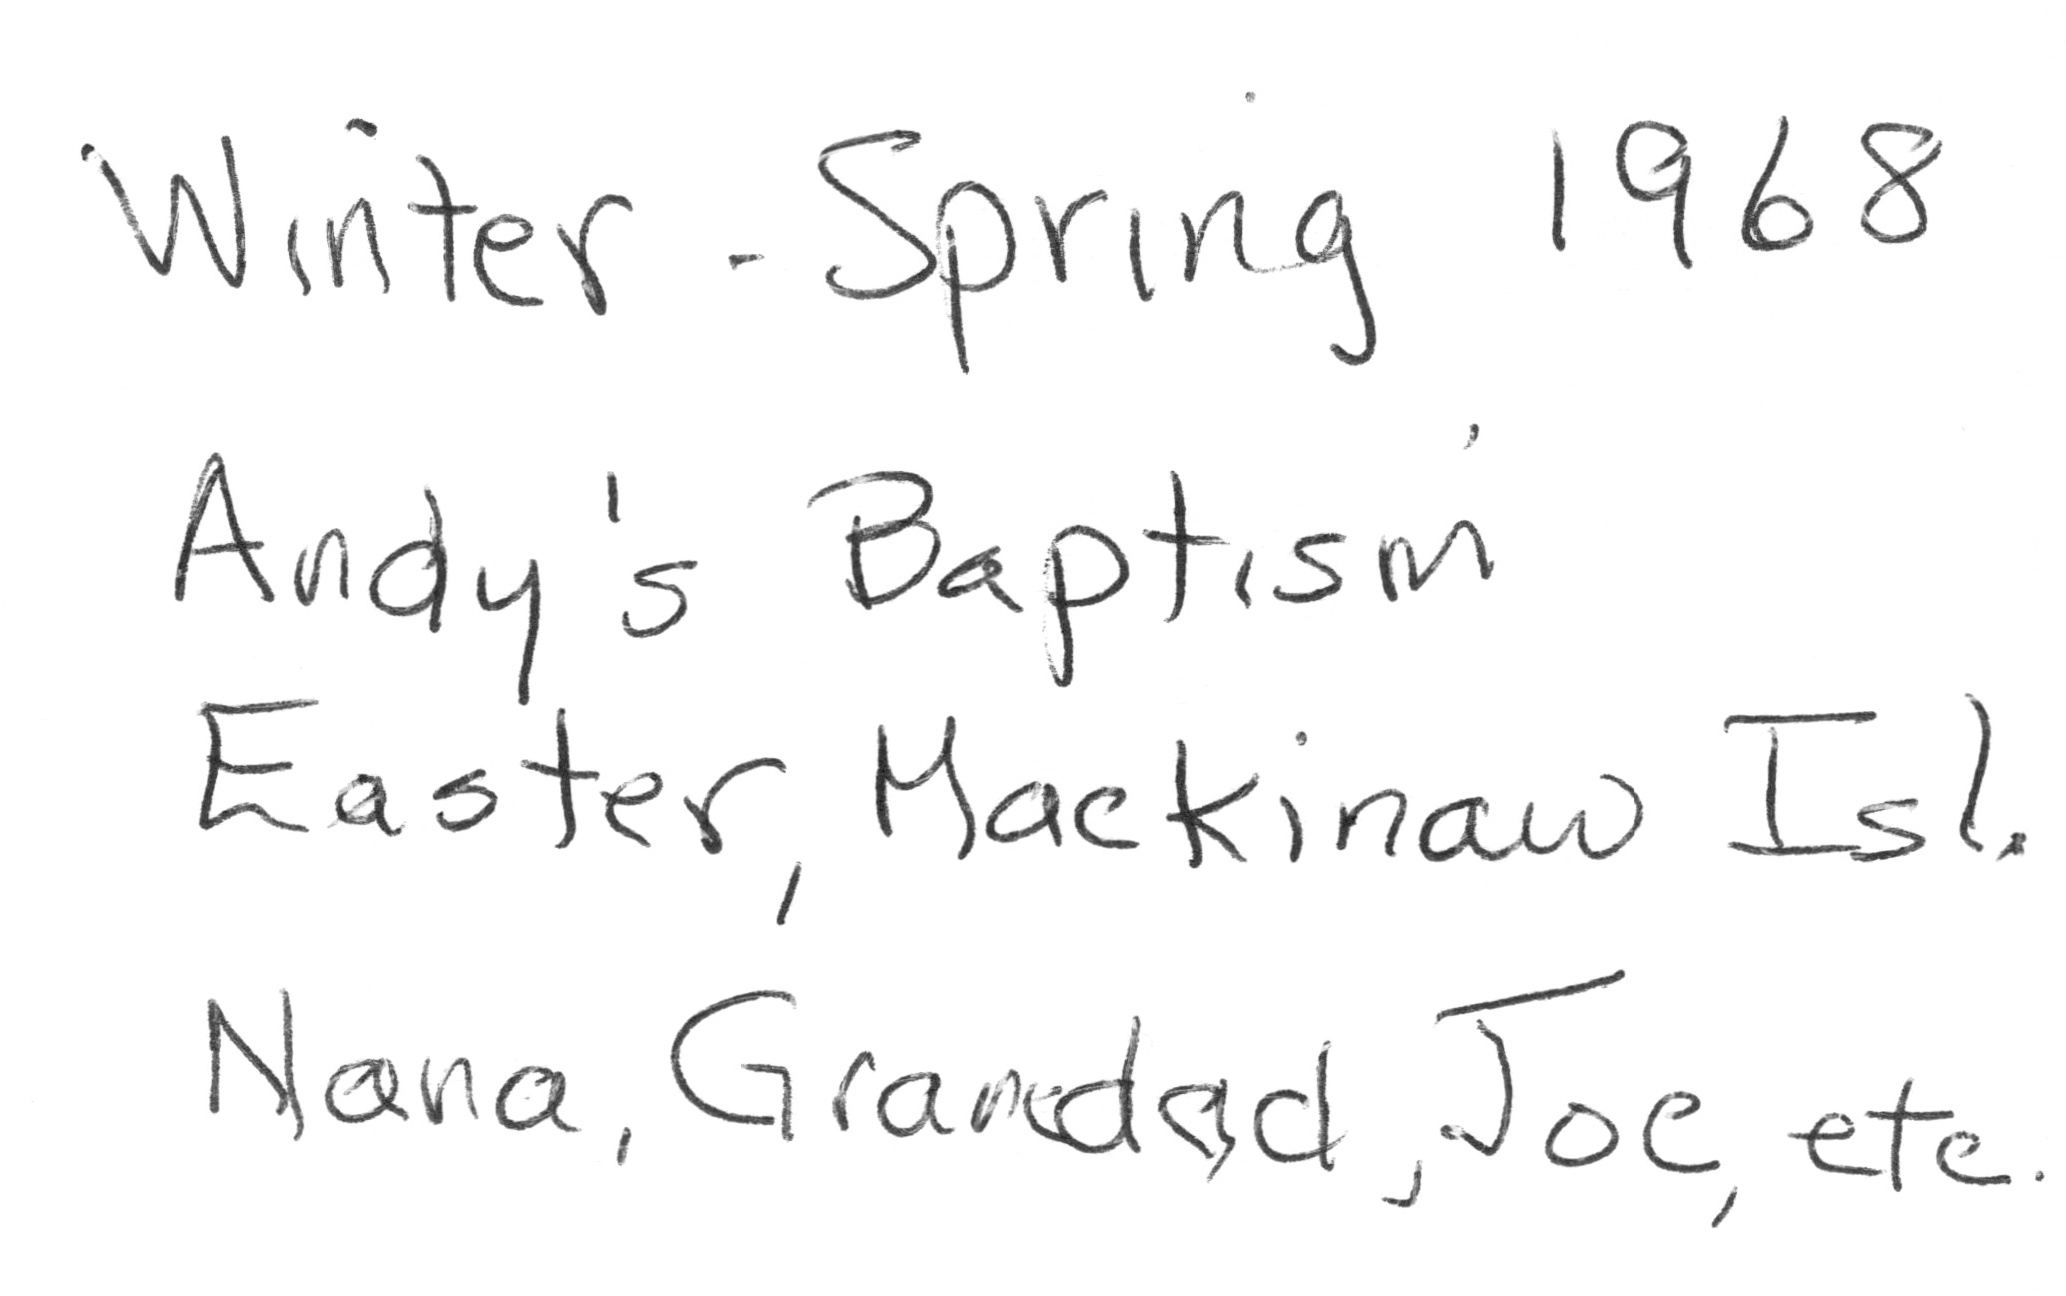 Winter - Spring 1968
Andy's Baptism
Easter, Mackinaw Isl.
Nana, Grandad, Joe, etc.